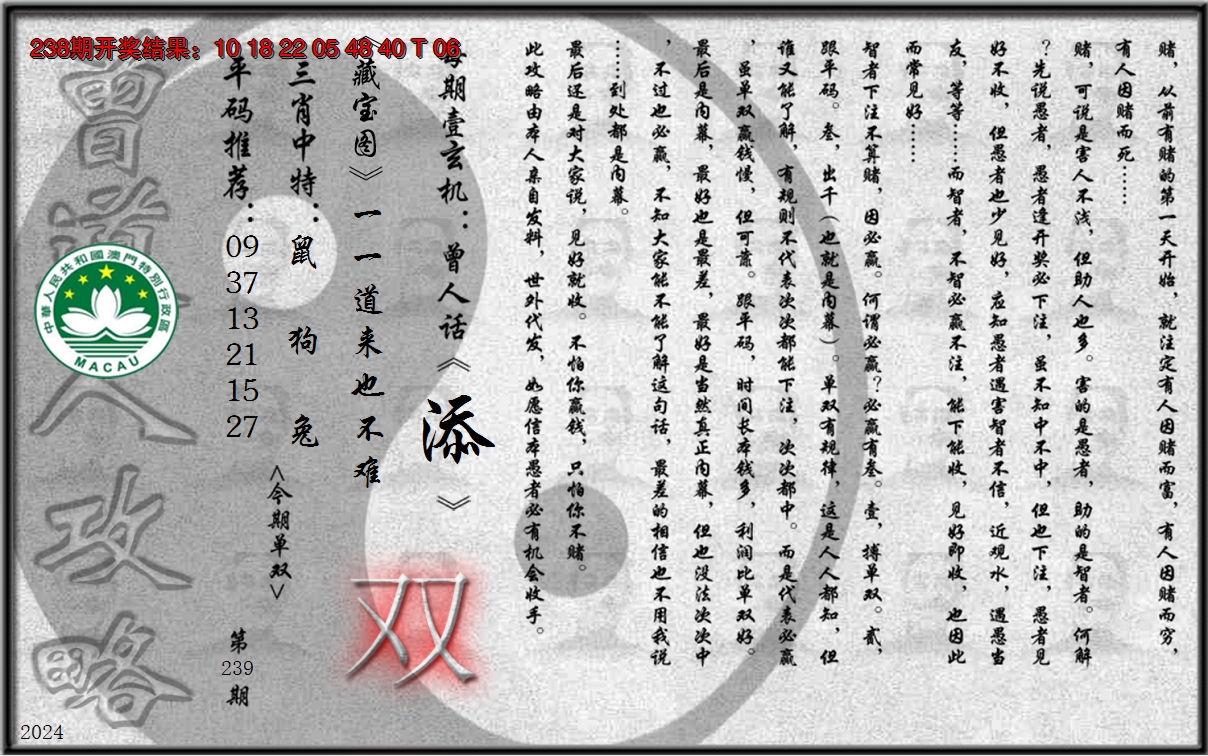 238期开奖结果：10 18 22 05 48 40 T 06
赌，从前有赌的第一天开始，就注定有人因赌而富，有人因赌而穷，
有人因赌而死……
赌，可说是害人不浅，但助人也多。害的是愚者，助的是智者。何解
？先说愚者，愚者逢开奖必下注，虽不知中不中，但也下注，愚者见
好不收，但愚者也少见好，应知愚者遇害智者不信，近观水，遇愚当
友，等等……而智者，不智必赢不注，能下能收，见好即收，也因此
而常见好……
智者下注不算赌，因必赢。何谓必赢？必赢有叁。壹，搏单双。贰，
跟平码。叁，出千（也就是内幕）。单双有规律，这是人人都知，但
谁又能了解，有规则不代表次次都能下注，次次都中。而是代表必赢
，虽单双赢钱慢，但可靠。跟平码，时间长本钱多，利润比单双好。
最后是内幕，最好也是最差，最好是当然真正内幕，但也没法次次中
，不过也必赢，不知大家能不能了解这句话，最差的相信也不用我说
……到处都是内幕。
最后还是对大家说，见好就收。不怕你赢钱，只怕你不赌。
此攻略由本人亲自发料，世外代发，如愿信本愚者必有机会收手。
每期壹玄机：曾人话《添》
《藏宝图》一一道来也不难
双
三肖中特：鼠 狗 兔
<今期单双>
平码推荐：
09
37
13
21
15
27
第
239
期
曾道人攻略
中華人民共和國澳門特別行政區
MACAU
2024